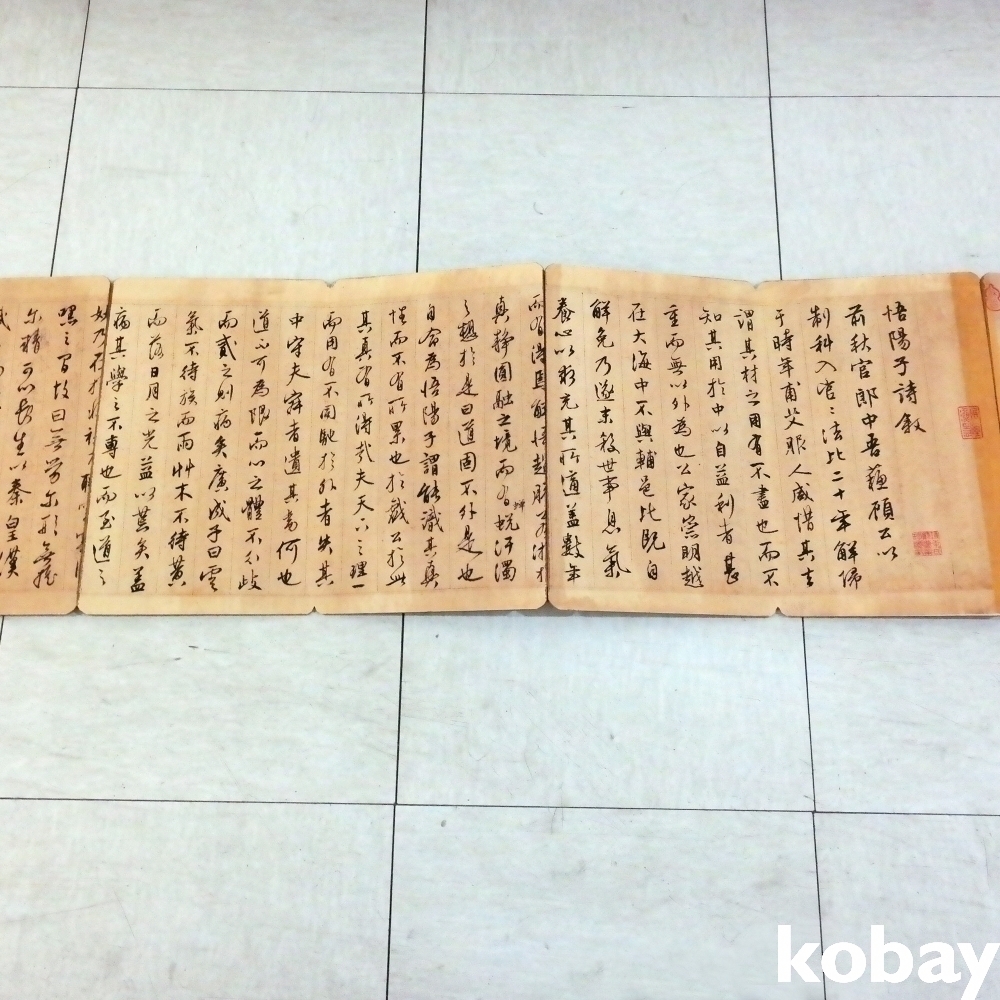 悟陽子詩敘
前秋官郎中吾蘇顧公以
制科入官官法比二十年解佩
于時年甫父服人咸惜其去
謂其材之用有不盡也而不
知其用於中以自益利者甚
重而無以外為也公家崇明越
在大海中不與輔邑比既自
解免乃遂末殺世事息氣
養心以彩充其所道蓋數年
而有得焉解悟超脫
真靜圓融之境而有蛻汙濁
之趣於是曰道固不外是也
自命為悟陽子謂能識其真
性而不有所累也於戲公於此
其真有所得哉夫天下之理一
而用有不同馳於外者失其
中守夫寂者遺其書何也
道不可為限而心之體不分歧
而貳之則病矣廣成子曰雲
氣不待族而雨艸木不待黃
而落日月之光益以荒矣蓋
病其學之不專也而至道之
妙乃在於
嘿之間故曰無勞爾形無搖
爾精可以長生以秦皇漢
kobay